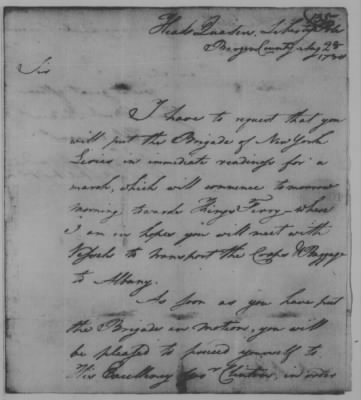 Head Quarters, Liberty Pole
Bergen County Aug 28
1780
Sir
I have to request that you
will put the Brigade of New York
Levies in immediate readiness for a
march, which will commence tomorrow
morning towards Kings Ferry – where
I am in hopes you will meet with
Vessels to transport the Corps & Baggage
to Albany.
As soon as you have put
the Brigade in motion, you will
be pleased to proceed yourself to
His Excellency Govr Clinton, in order